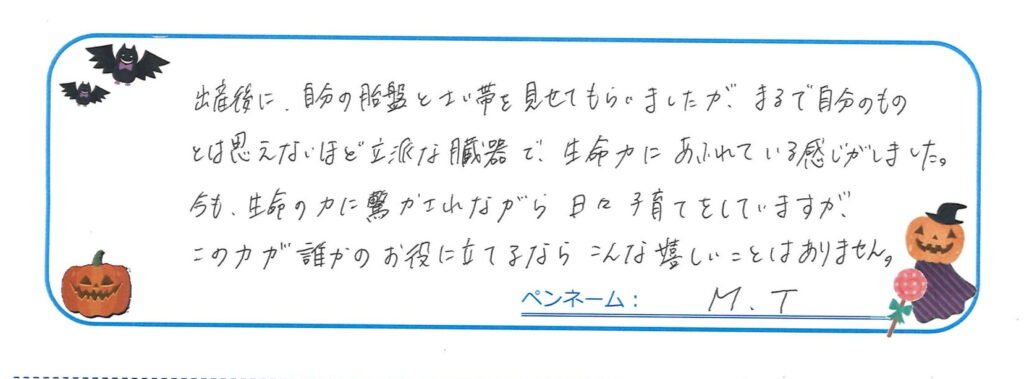 出産後に、自分の胎盤とさい帯を見せてもらいましたが、まるで自分のもの
とは思えないほど立派な臓器で、生命力にあふれている感じがしました。
今も、生命の力に驚かされながら日々子育てをしていますが、
この力が誰かのお役に立てるならこんな嬉しいことはありません。
ペンネーム： M.T